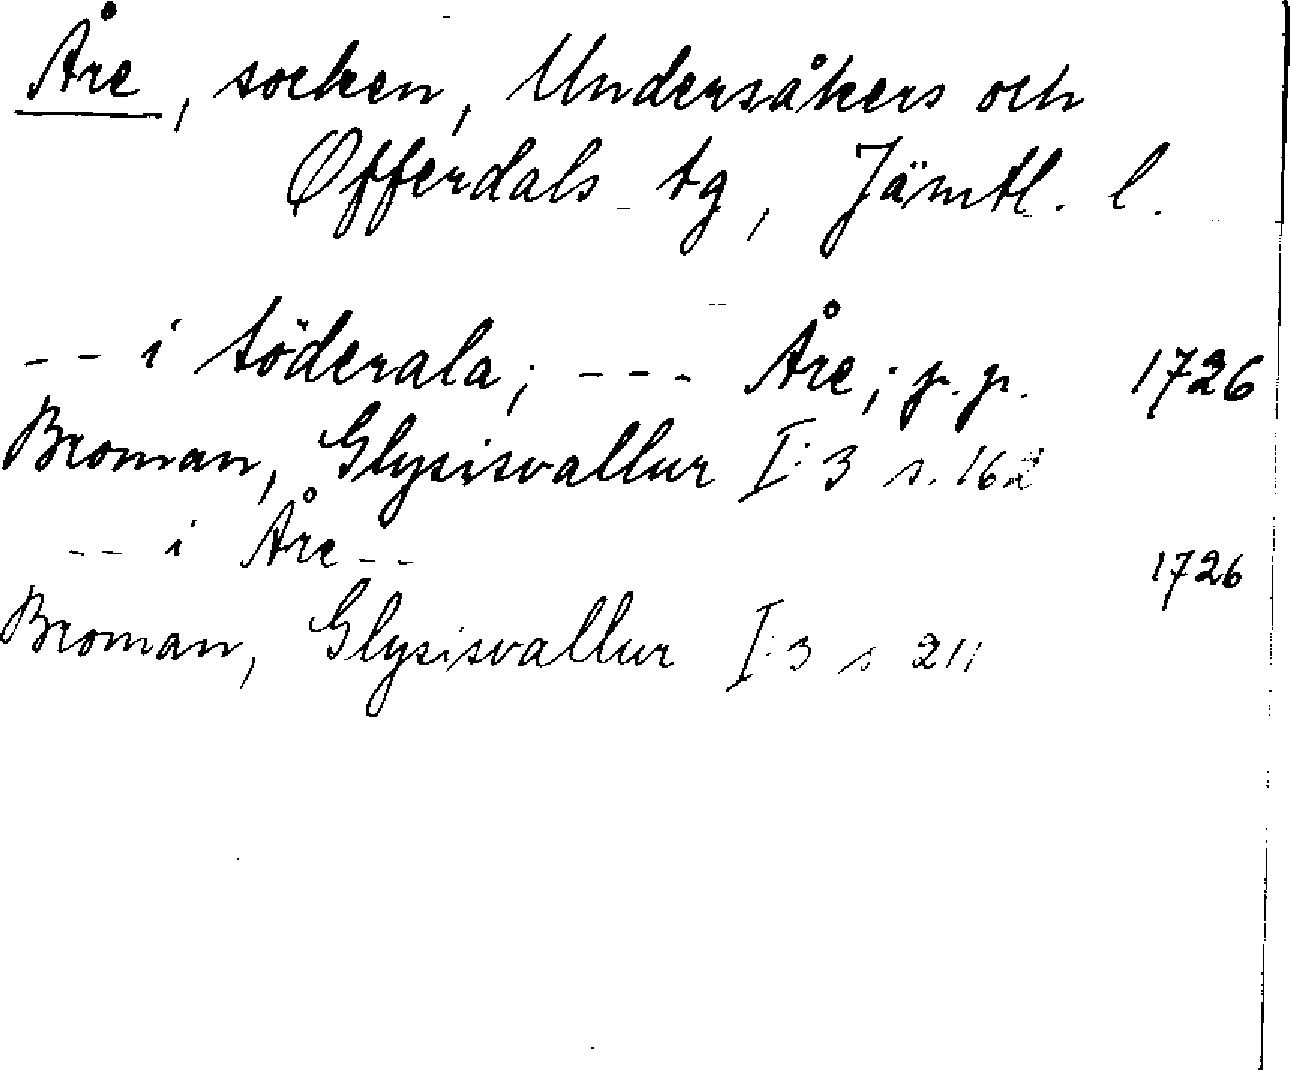 Åre, socken, Undersåkers och
Offerdals tg, Jämtl. l.
-- i Söderala; --- Åre; p.p. 1726
Broman, Glysisvallur I:3 s. 162
-- i Åre -- 1726
Broman, Glysisvallur I:3 s 211